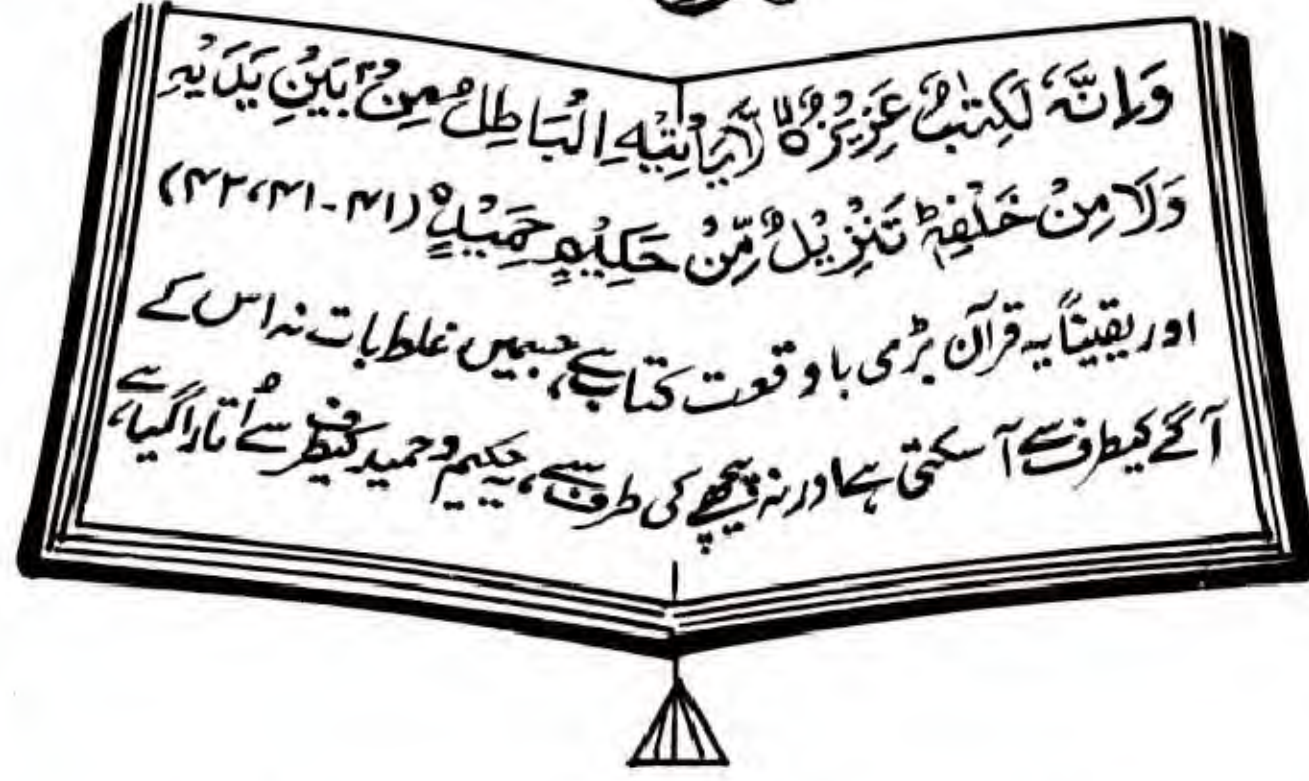 وَاِنَّهٗ لَكِتٰبٌ عَزِيْزٌ ۙ لَّا يَاْتِيْهِ الْبَاطِلُ مِنْۢ بَيْنِ يَدَيْهِ
وَلَا مِنْ خَلْفِهٖ ؕ تَنْزِيْلٌ مِّنْ حَكِيْمٍ حَمِيْدٍ (۴۱-۴۱،۴۲)
اور یقیناً یہ قرآن بڑی باوقعت کتاب ہے، جسمیں غلط بات نہ اس کے
آگے کیطرف سے آ سکتی ہے اور نہ پیچھے کی طرف سے، یہ حکیم و حمید کیطرف سے اُتارا گیا ہے،